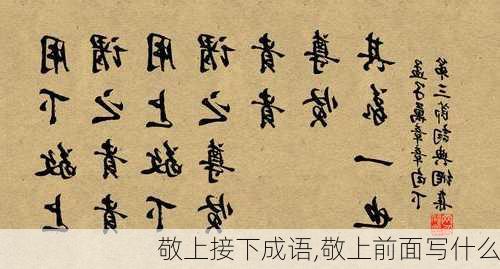 用下敬上
謂之貴貴
用上敬下
謂之尊賢
貴貴
尊賢
其義一也
孟子萬章章句下
第三節
敬上接下成语,敬上前面写什么